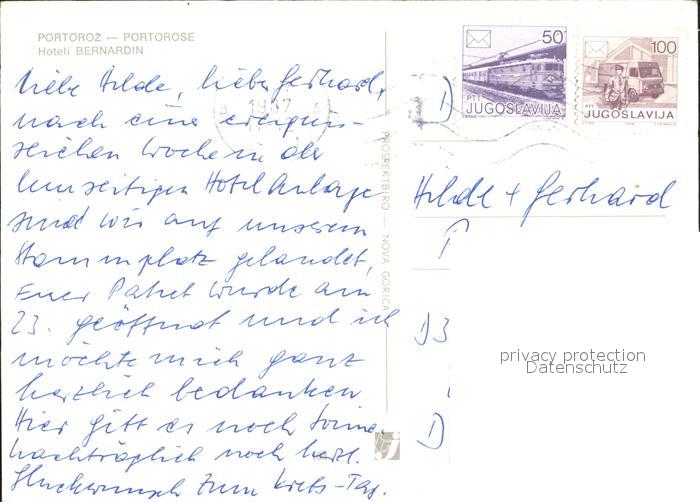 PORTOROŽ — PORTOROSE
Hoteli BERNARDIN
Liebe Hilde, lieber Gerhard,
nach einer ereignis-
reichen Woche in der
umseitigen Hotel Anlage
sind wir auf unserem
Stammplatz gelandet,
Euer Paket wurde am
23. geöffnet und ich
möchte mich ganz
herzlich bedanken
Hier gilt es noch
nachträglich noch herzl.
Glückwunsch zum Krebs-Tag.
PROSPEKTBIRO — NOVA GORICA
50
PTT
JUGOSLAVIJA
100
PTT
JUGOSLAVIJA
D
Hilde + Gerhard
P
D3
D
privacy protection
Datenschutz